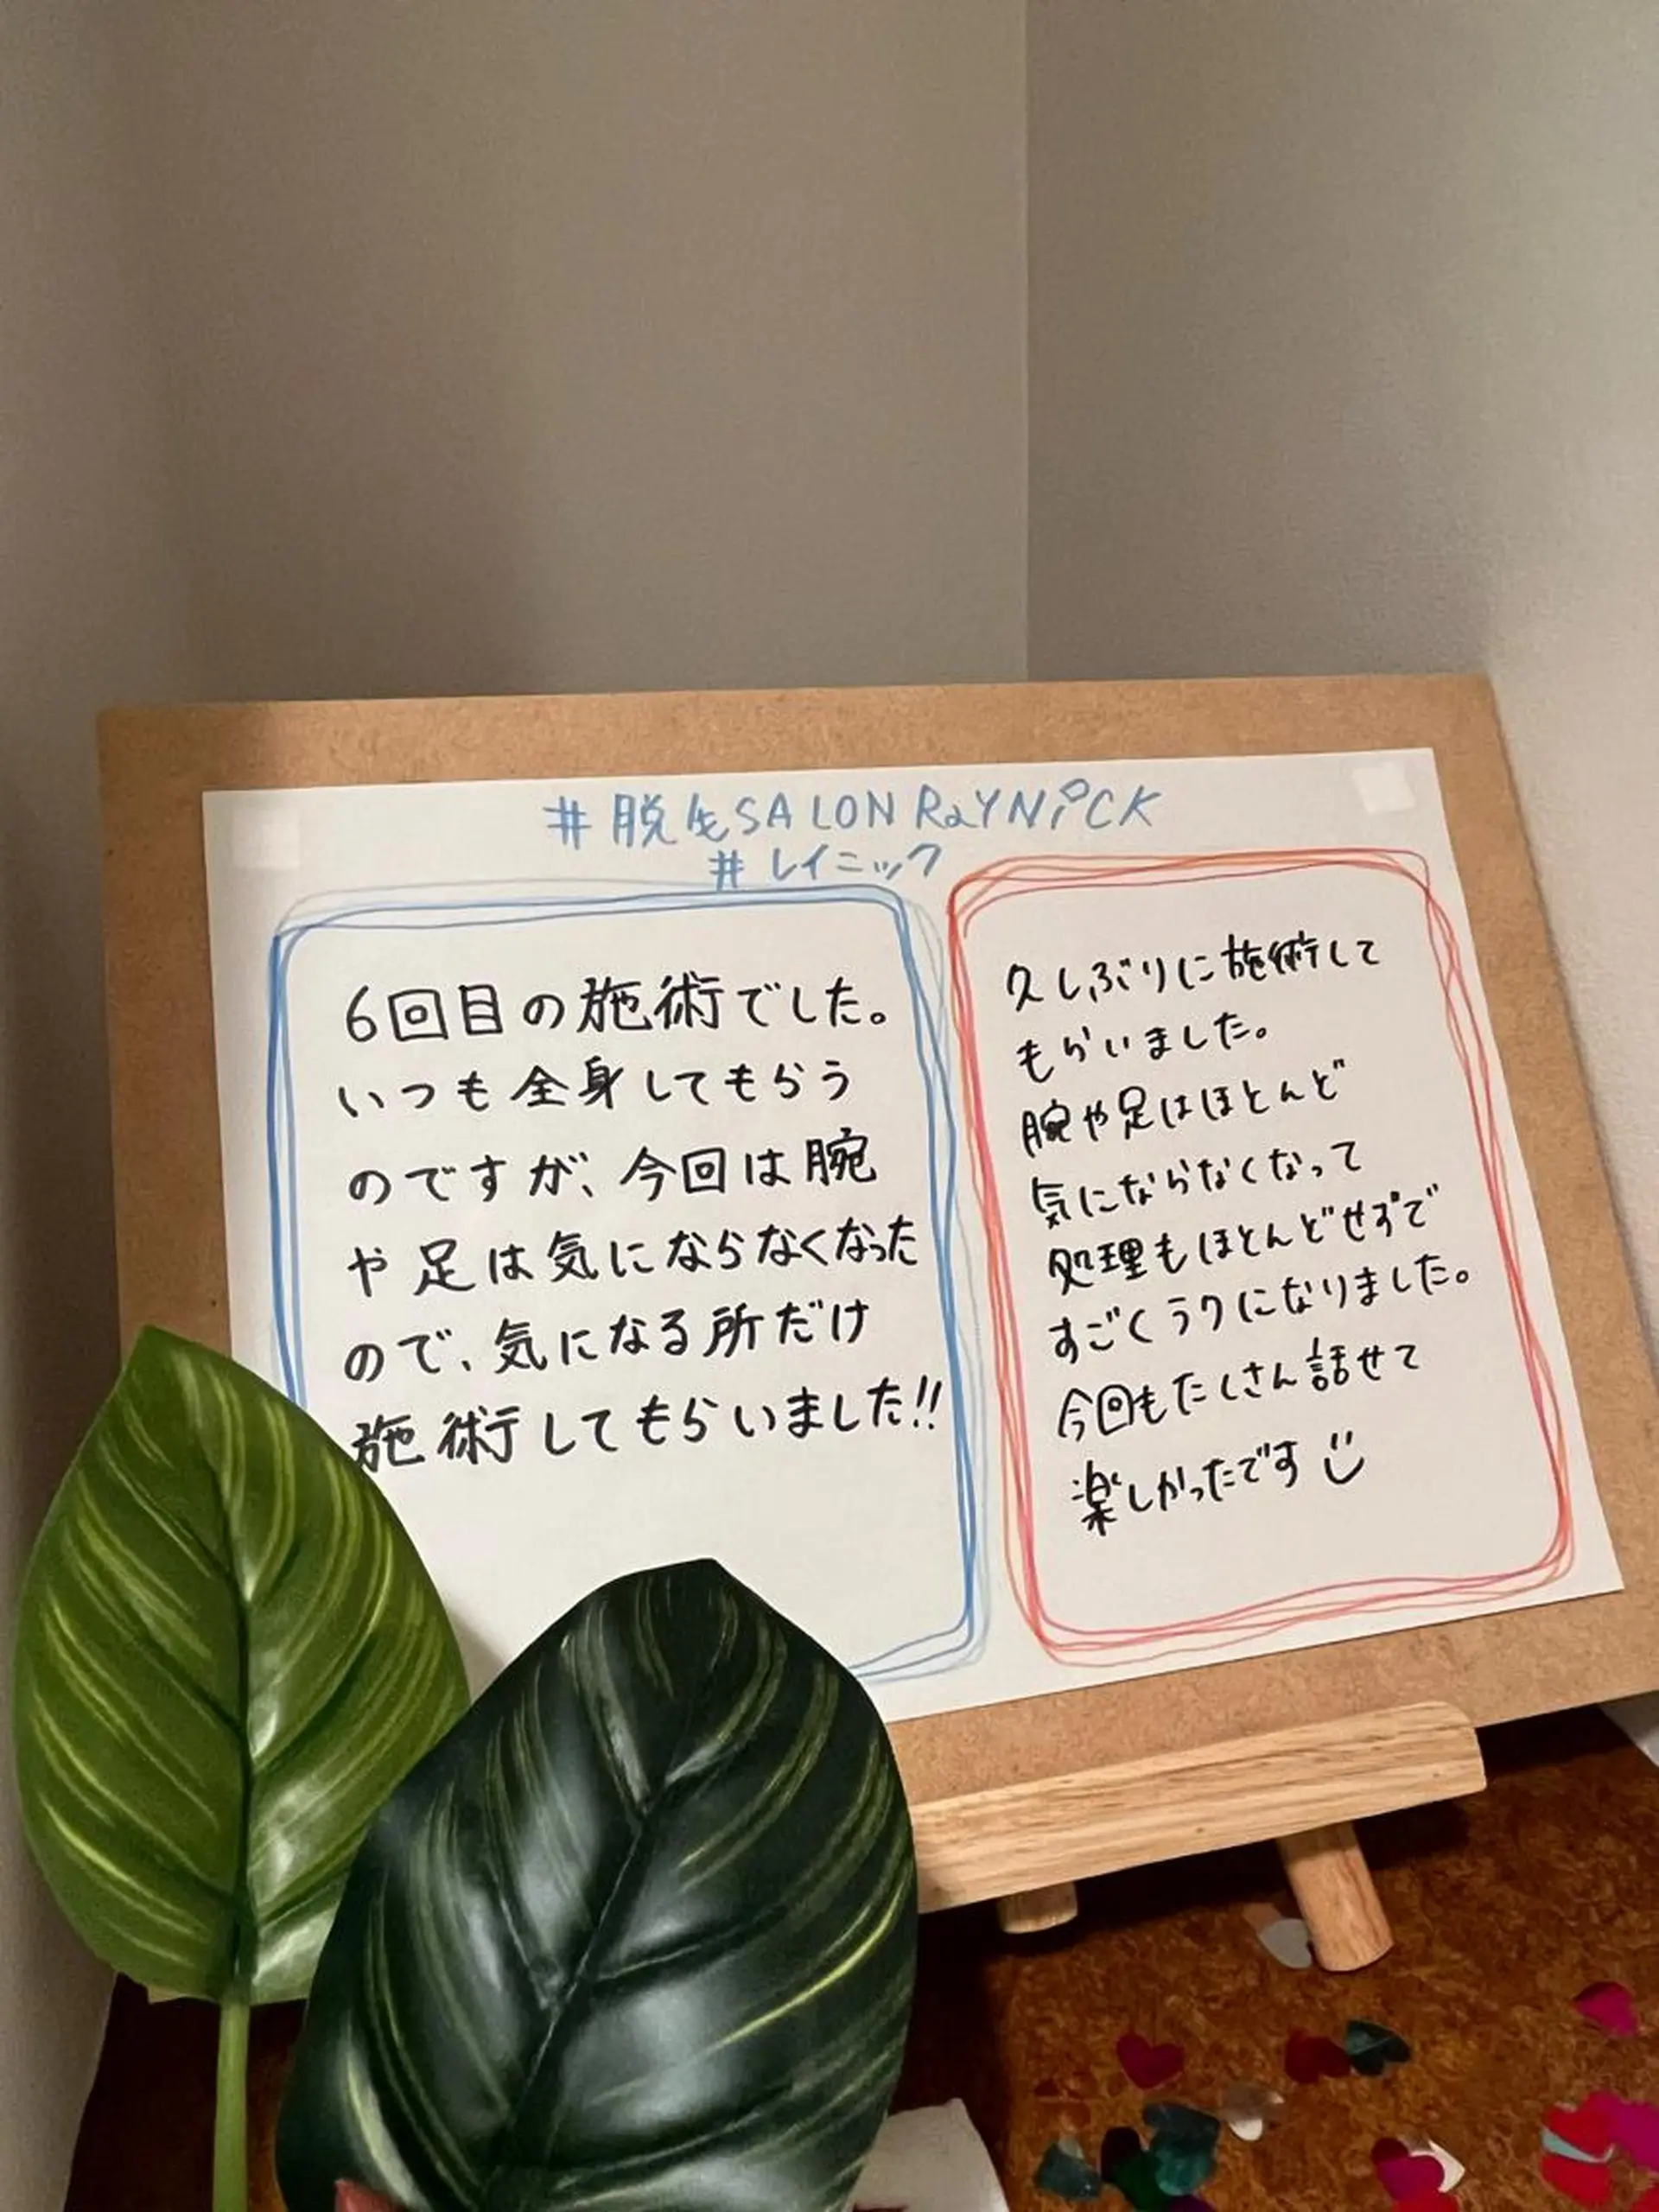 #脱毛SALON RaYNiCK
#レイニック
6回目の施術でした。
いつも全身してもらう
のですが、今回は腕
や足は気にならなくなった
ので、気になる所だけ
施術してもらいました!!
久しぶりに施術して
もらいました。
腕や足はほとんど
気にならなくなって
処理もほとんどせずで
すごくラクになりました。
今回もたくさん話せて
楽しかったです